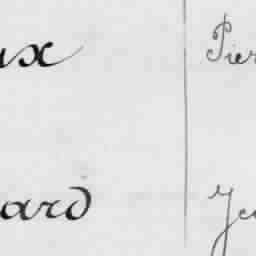 ux Pier
ard Jea